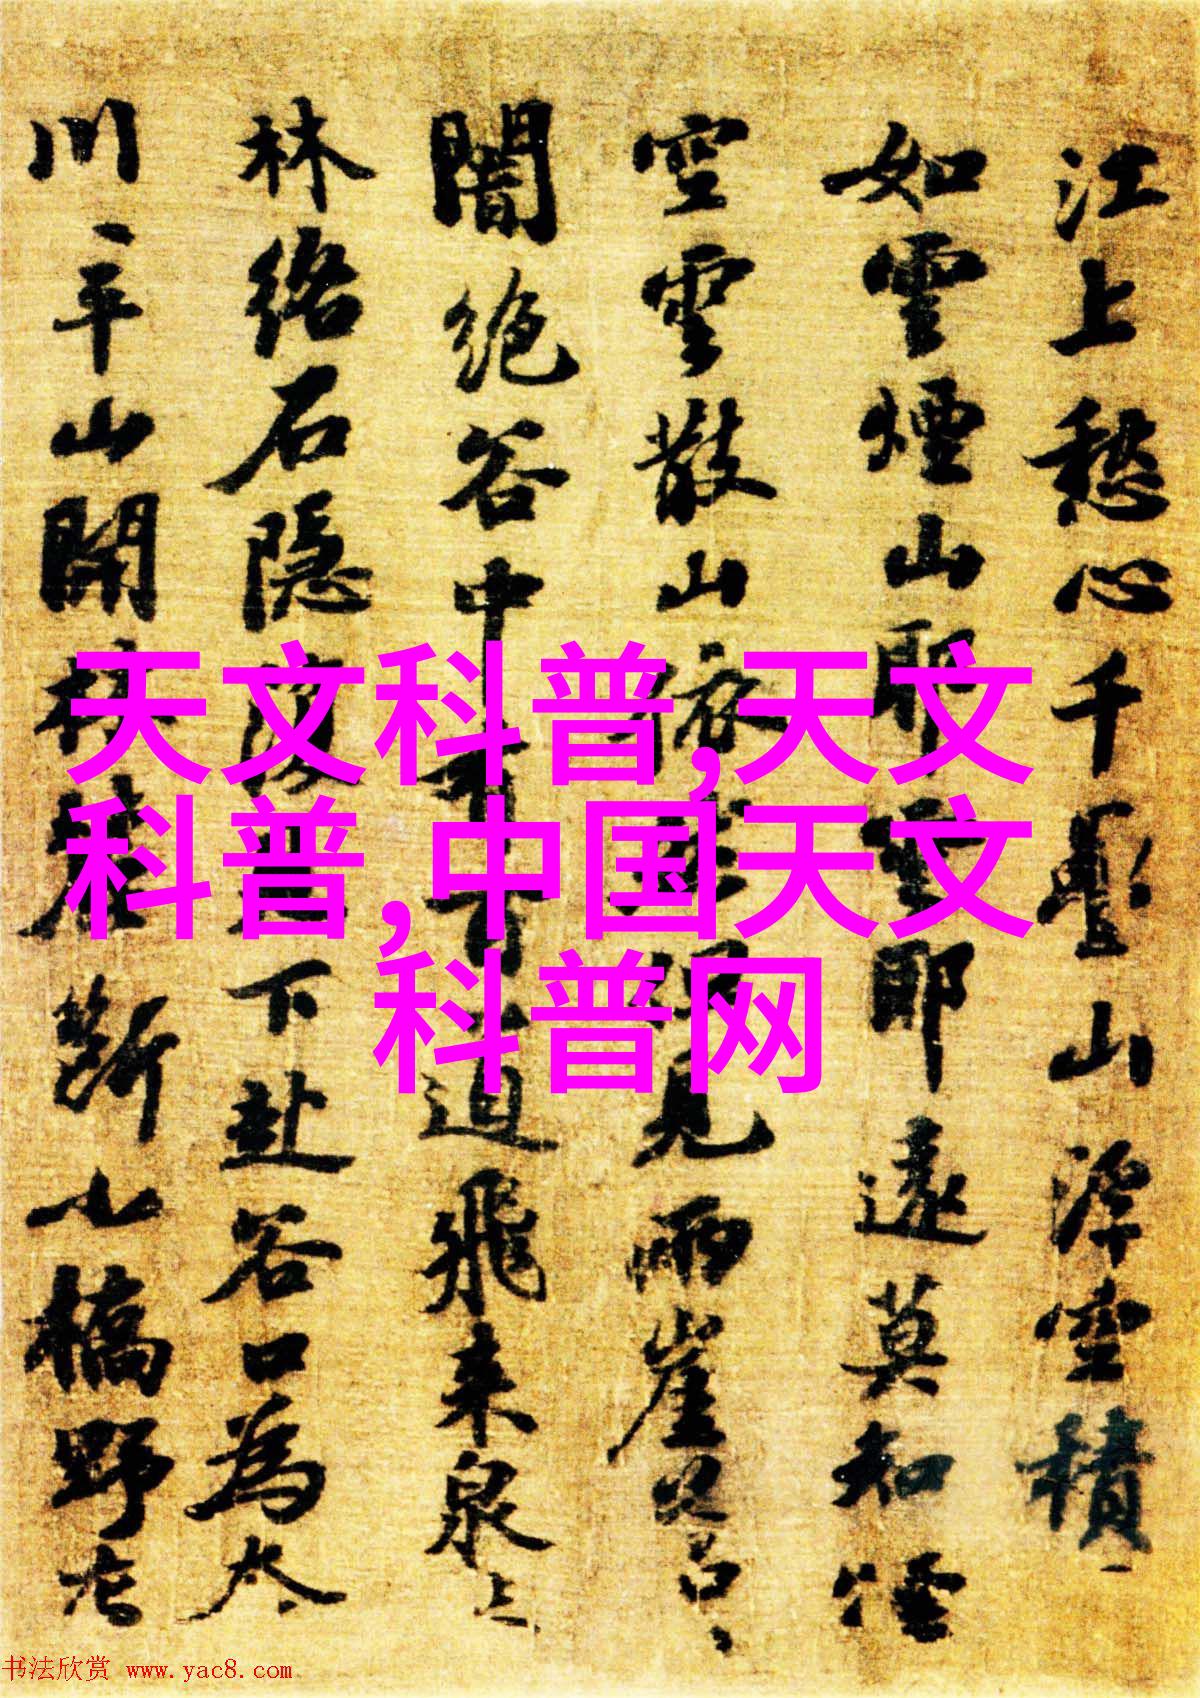 天文科普,天文
科普,中国天文
科普网
江上愁心千疊山浮空積
如雲煙山耶雲耶遠莫知煙
空雲散山依見兩崖
闇絕谷中百道飛來泉
林絡石隱下赴谷口為
川平山開林麓斷小橋野
书法欣赏 www.yac8.com